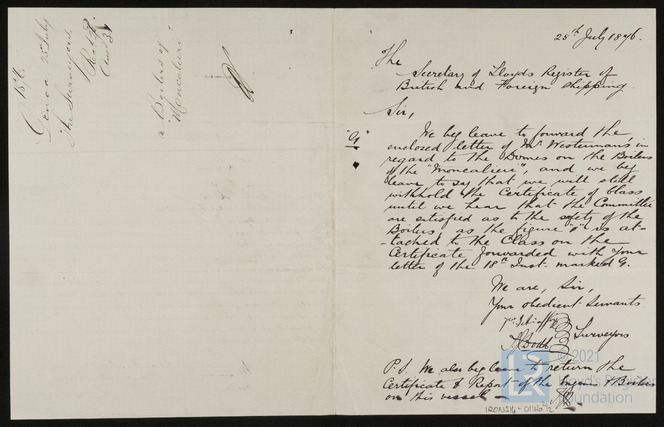 25th July 1876.
The
Secretary of Lloyds Register of
British and Foreign Shipping.
Sir,
"G"
We beg leave to forward the
enclosed letter of Mr Westermans in
regard to the Domes on the Boilers
of the "Moncalieri", and we beg
leave to say that we will still
withhold the Certificate of Class
until we hear that the Committee
are satisfied as to the safety of the
Boilers, as the figure "1" is at-
-tached to the Class on the
Certificate forwarded with your
letter of the 18th Inst. marked G.
We are, Sir,
Your obedient Servants
Surveyors
P.S. We also beg leave to return the
Certificate & Report of the Engines & Boilers
on this vessel
Genoa 25 July
The Surveyors
Boilers of
"Moncalieri"
© 2021
Foundation